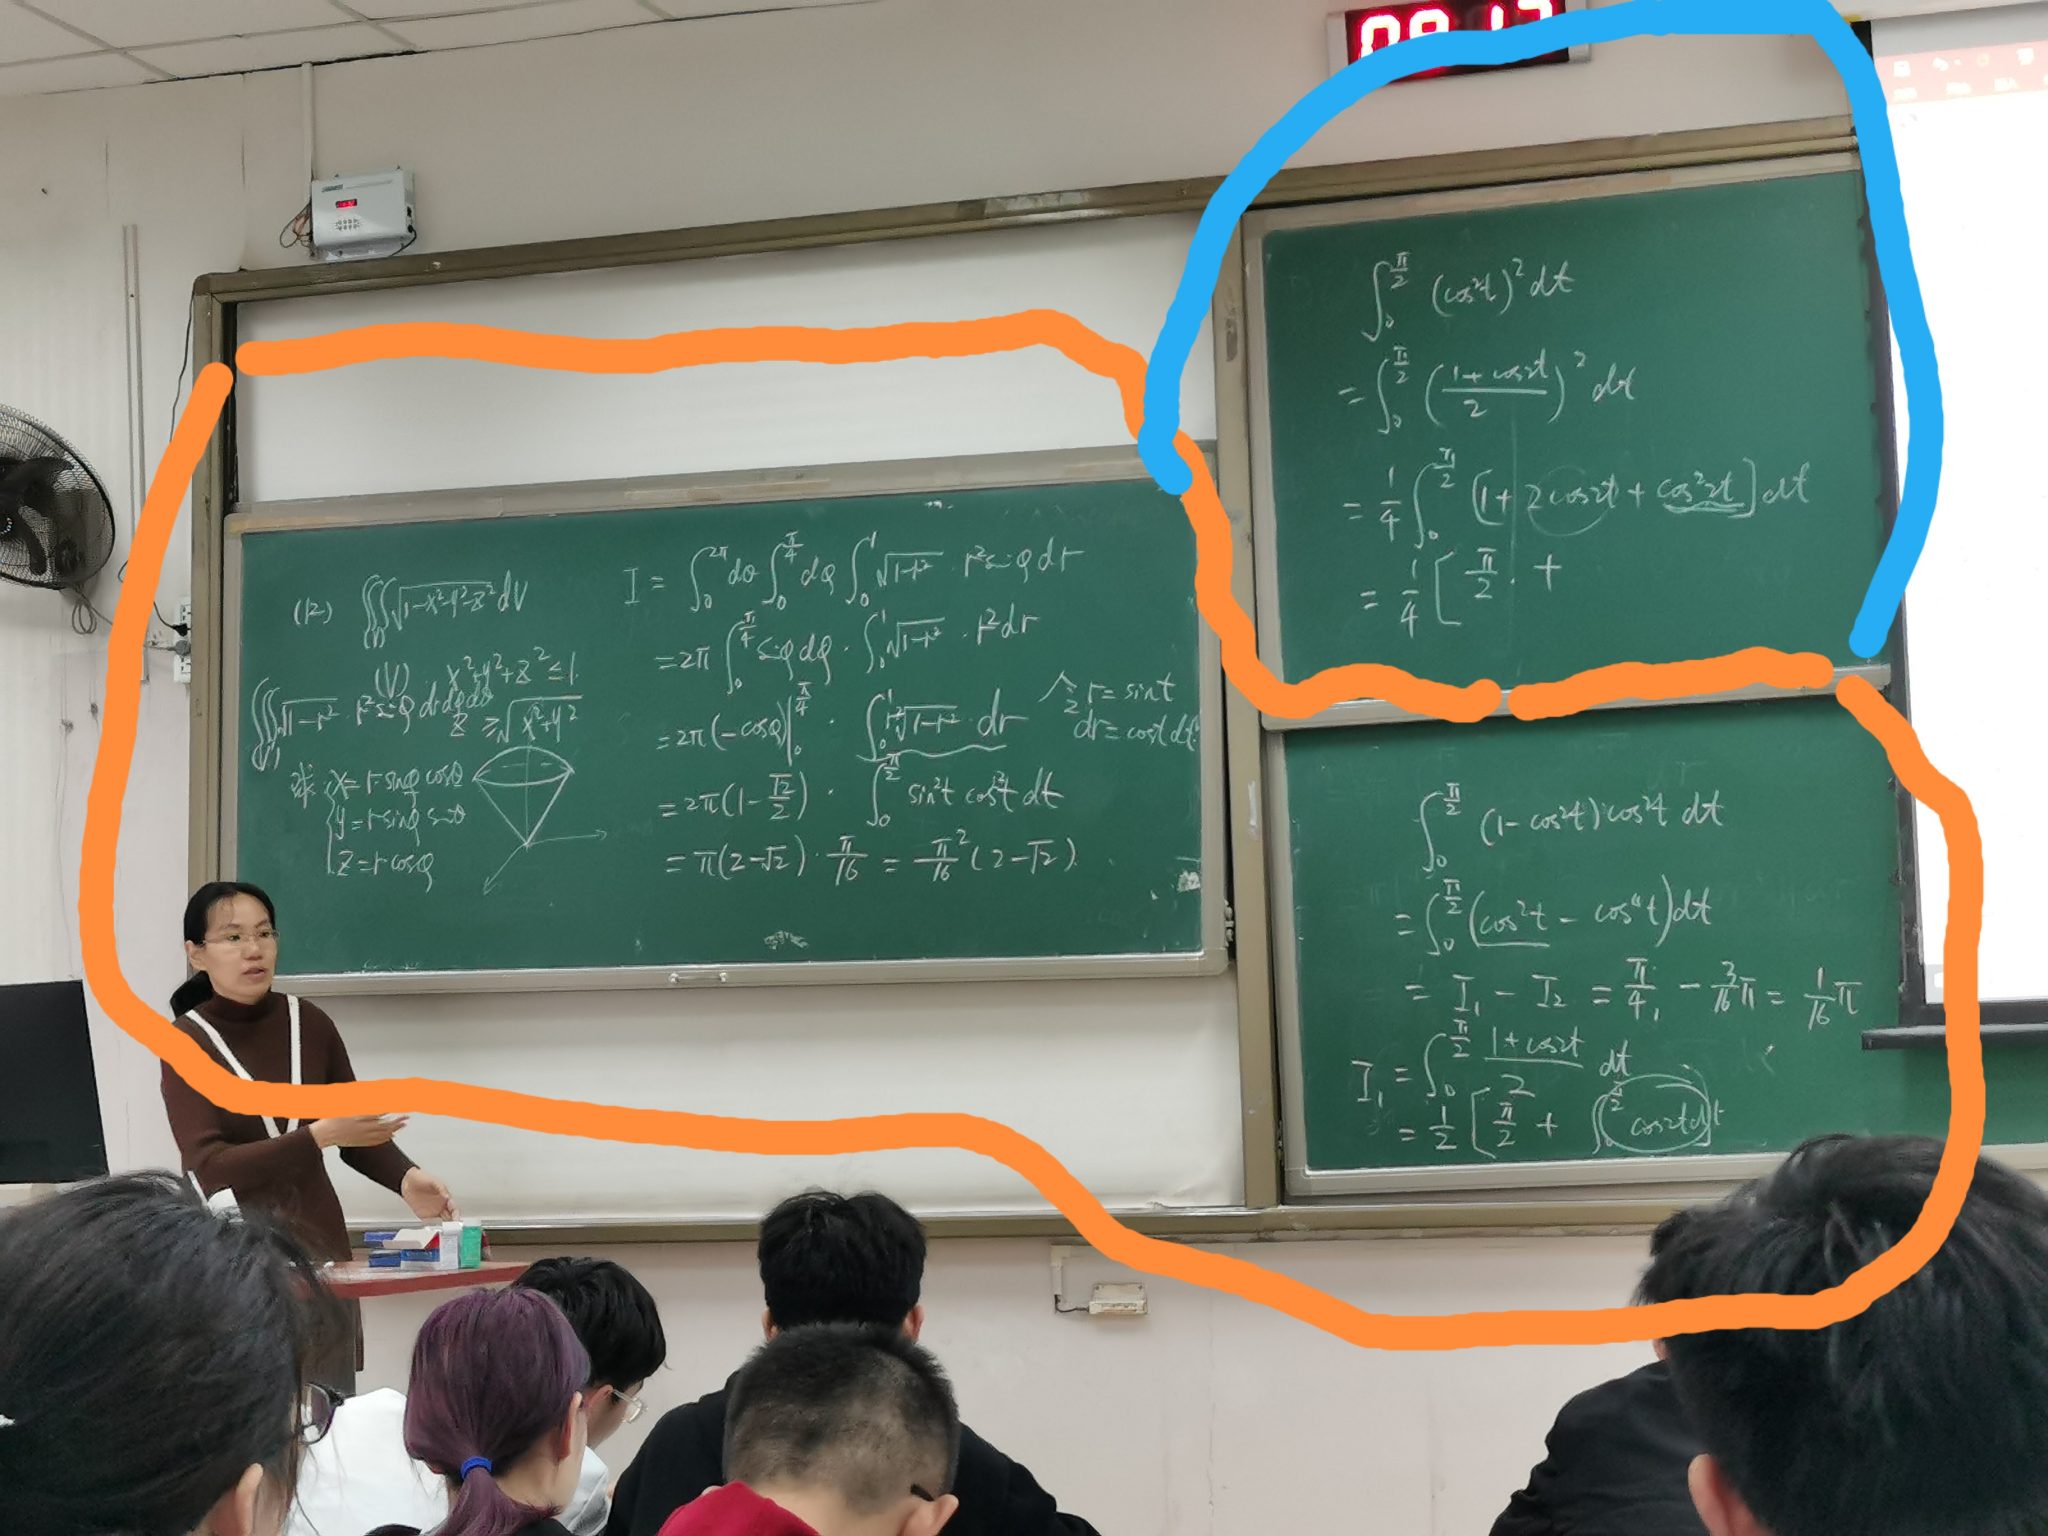 09:17
(12) ∭_(V) √(1-x²-y²-z²) dV
(V) x²+y²+z² ≤ 1.
z ≥ √(x²+y²)
∭_(V) √(1-r²) · r² sinφ dr dφ dθ
球: { x = r sinφ cosθ
y = r sinφ sinθ
z = r cosφ
I = ∫₀^{2π} dθ ∫₀^{π/4} dφ ∫₀¹ √(1-r²) · r² sinφ dr
= 2π ∫₀^{π/4} sinφ dφ · ∫₀¹ √(1-r²) · r² dr
= 2π (-cosφ)|₀^{π/4} · ∫₀¹ r² √(1-r²) · dr
令 r = sint
dr = cost dt
= 2π (1 - √2/2) · ∫₀^{π/2} sin²t cos²t dt
= π(2-√2) · π/16 = π²/16 (2-√2).
∫₀^{π/2} (cos²t)² dt
= ∫₀^{π/2} ((1+cos2t)/2)² dt
= 1/4 ∫₀^{π/2} [1 + 2cos2t + cos²2t] dt
= 1/4 [ π/2 · +
∫₀^{π/2} (1-cos²t) cos²t dt
= ∫₀^{π/2} (cos²t - cos⁴t) dt
= I₁ - I₂ = π/4 - 3/16 π = 1/16 π
I₁ = ∫₀^{π/2} (1+cos2t)/2 dt
= 1/2 [ π/2 + ∫₀^{π/2} cos2t dt